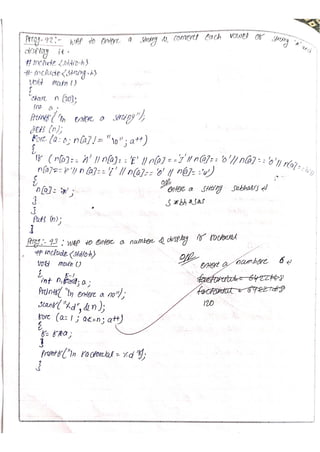 Prog-92:- WAP to enter a string & convert each vowel of string
display it.
# include <stdio.h>
# include <string.h>
void main ()
{
char n [20];
int a;
printf("\n enter a string");
gets (n);
for (a=0; n[a]!= "\0"; a++)
{
if (n[a]=='A' || n[a]=='E' || n[a]=='I' || n[a]=='O' || n[a]=='U' || n[a]==
n[a]=='e' || n[a]=='i' || n[a]=='o' || n[a]=='u')
{
n[a]='*';
}
}
puts (n);
}
O/P
enter a string subhasis
s*bh*s*s
Prog:- 93 : WAP to enter a number & display its factorial
# include <stdio.h>
void main ()
{
int n, f=1, a;
printf("\n enter a no");
scanf("%d", &n);
for (a=1; a<=n; a++)
{
f= f*a;
}
printf("\n factorial = %d");
}
O/P
enter a number 5
120